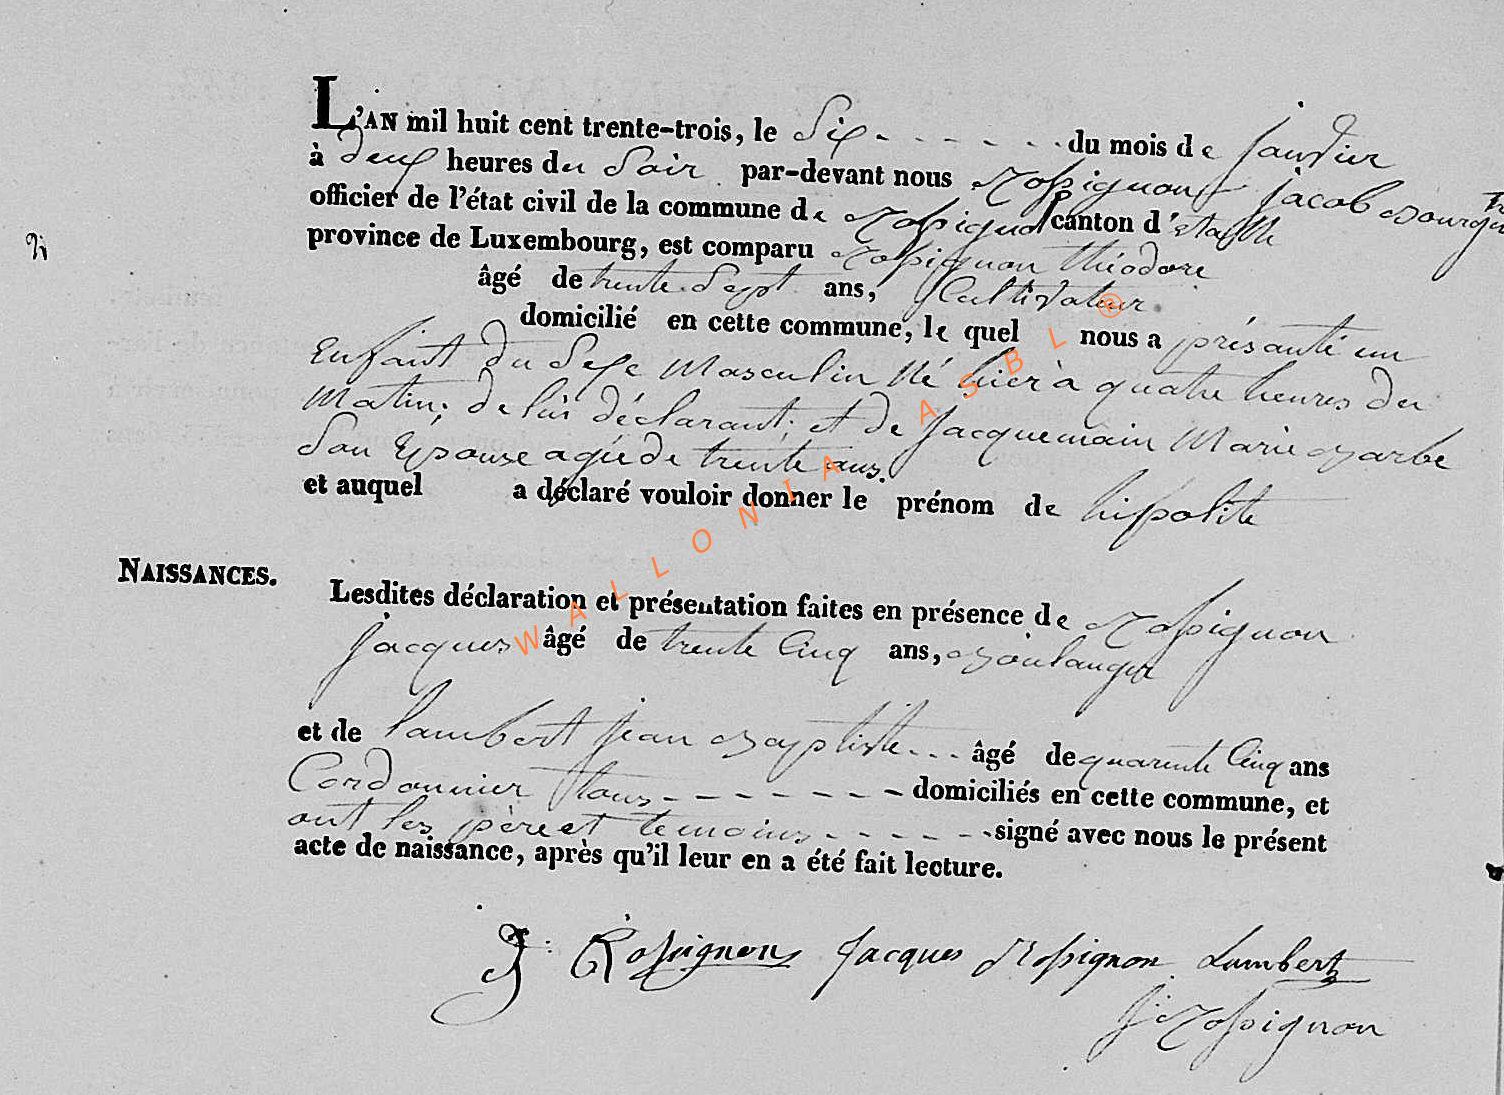 L'AN mil huit cent trente-trois, le Six - - - - - - du mois de janvier
à deux heures du Soir par-devant nous Rossignon jacob Bourgm
officier de l'état civil de la commune de Rossignol canton d'étalle
province de Luxembourg, est comparu Rossignon théodore
âgé de trente Sept ans, Cultivateur
domicilié en cette commune, le quel nous a présanté un
Enfant du Sexe Masculin Né hier à quatre heures du
Matin; de lui déclarant; et de jacquemain Marie Barbe
Son Epouse agée de trente ans.
et auquel a déclaré vouloir donner le prénom de hippolite
NAISSANCES.
Lesdites déclaration et présentation faites en présence de Rossignon
jacques âgé de trente Cinq ans, Boulanger
et de lambert jean Baptiste - - - âgé de quarente Cinq ans
Cordonnier tous - - - - - - - - domiciliés en cette commune, et
ont les père et temoins - - - - - - signé avec nous le présent
acte de naissance, après qu'il leur en a été fait lecture.
Rossignon Jacques Rossignon Lambert
j: Rossignon
WALLONIA ASBL ®